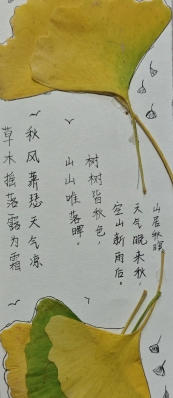 山居秋暝
天气晚来秋，
空山新雨后。
树树皆秋色，
山山唯落晖。
秋风萧瑟天气凉
草木摇落露为霜